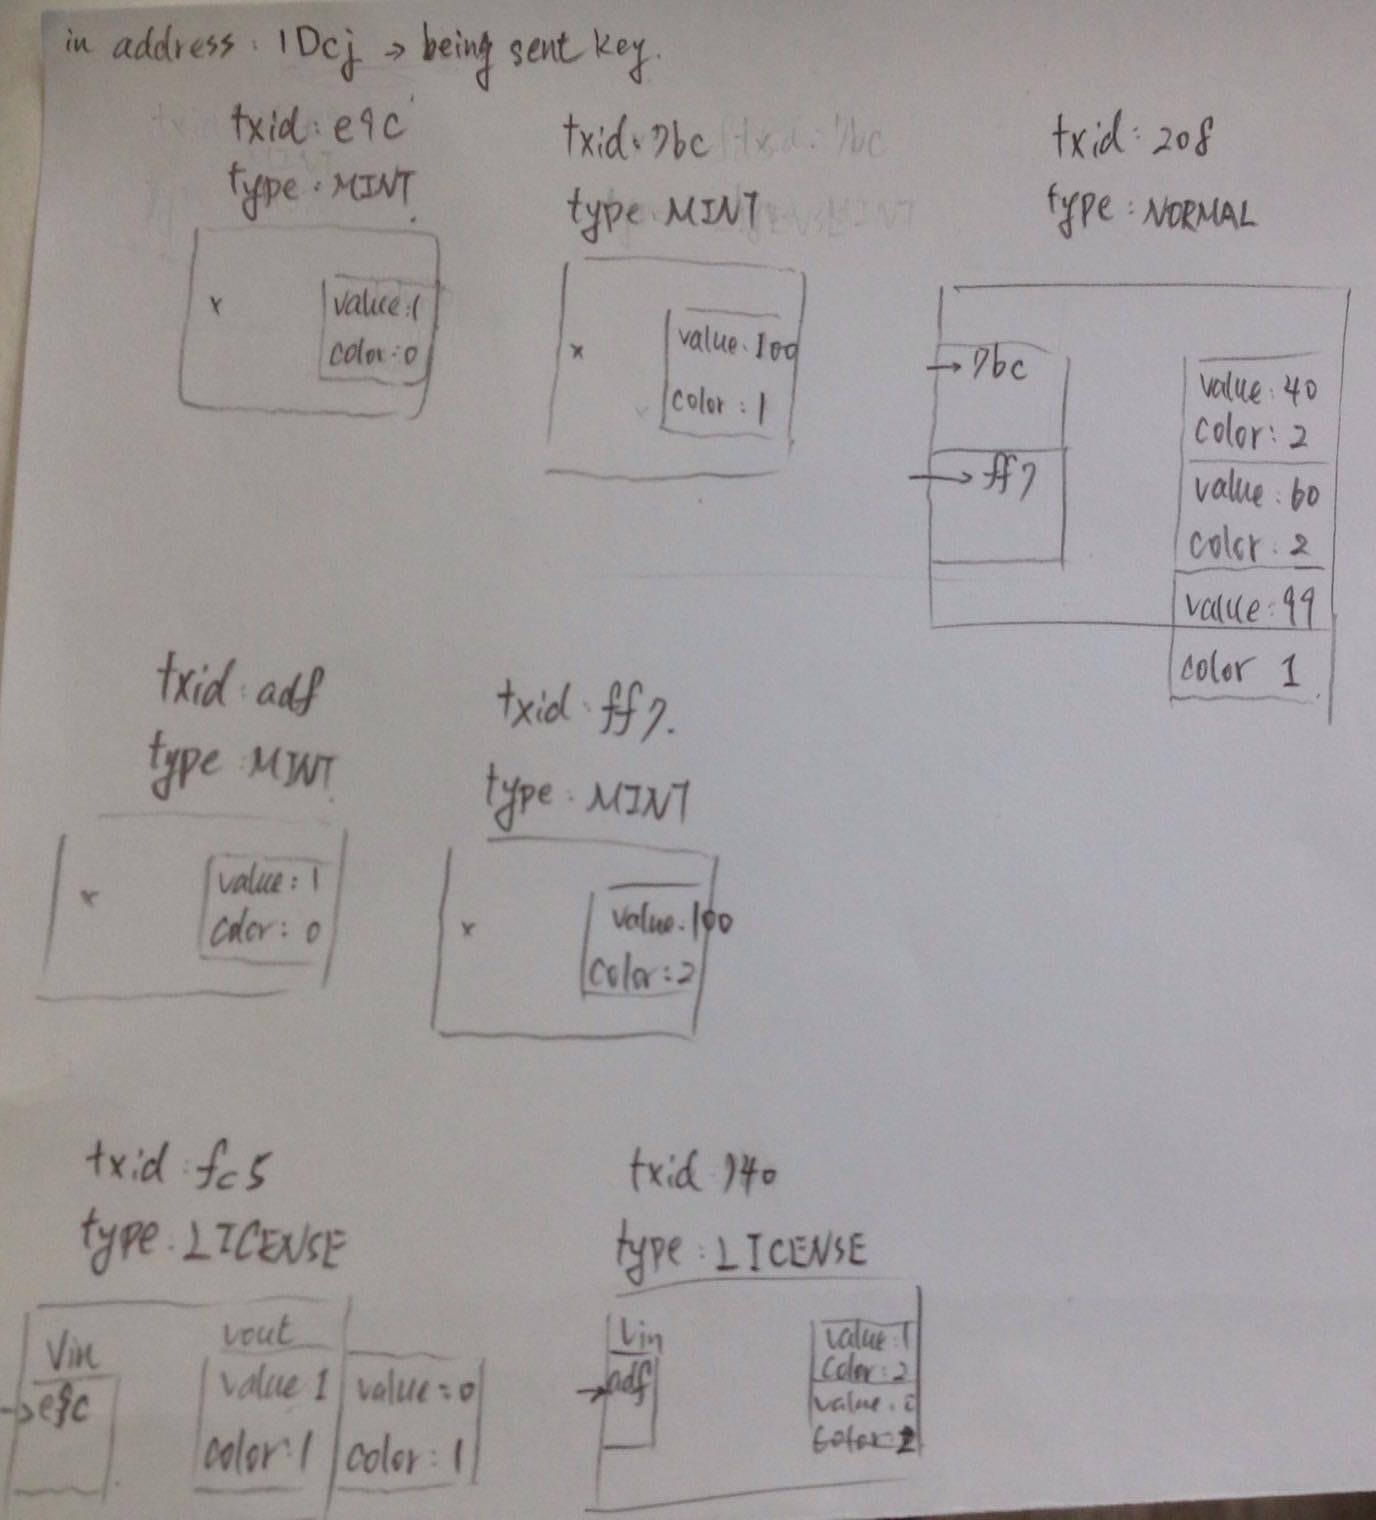 in address : 1Dcj → being sent key.
txid : e9c
type : MINT
x
value : 1
color : 0
txid : 7bc
type MINT
x
value : 100
color : 1
txid : 208
type : NORMAL
→ 7bc
→ ff7
value : 40
color : 2
value : 60
color : 2
value : 99
color 1
txid : adf
type MINT
x
value : 1
color : 0
txid : ff7.
type : MINT
x
value : 100
color : 2
txid : fc5
type : LICENSE
Vin
→ e9c
vout
value 1
color : 1
value = 0
color : 1
txid 740
type : LICENSE
Vin
→ adf
value : 1
color : 2
value : 0
color : 2